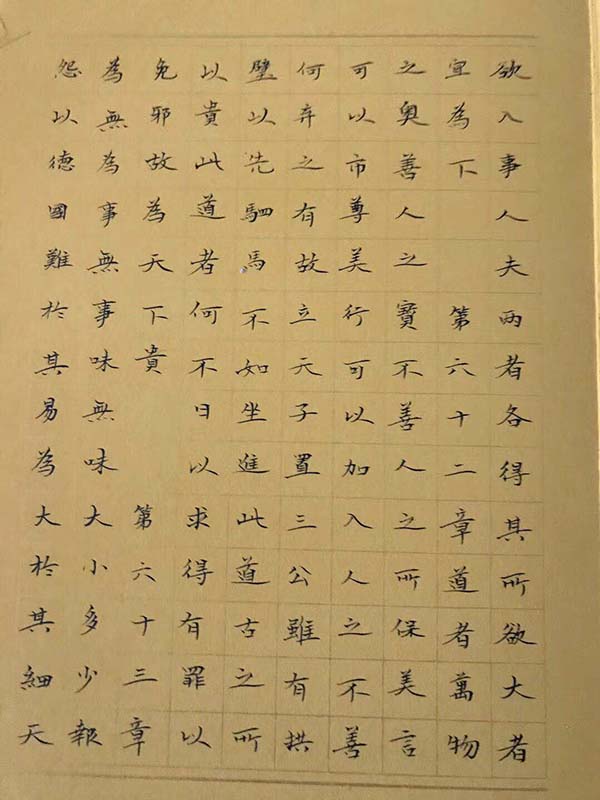 欲入事人夫兩者各得其所欲大者
宜為下 第六十二章道者萬物
之奧善人之寶不善人之所保美言
可以市尊美行可以加入人之不善
何弃之有故立天子置三公雖有拱
璧以先駟馬不如坐進此道古之所
以貴此道者何不日以求得有罪以
免邪故為天下貴 第六十三章
為無為事無事味無味大小多少報
怨以德國難於其易為大於其細天